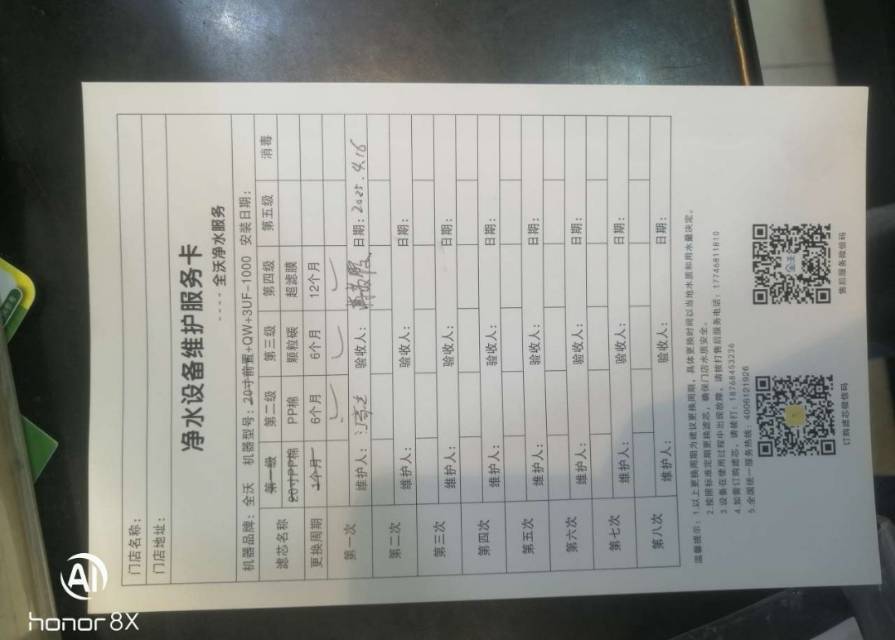 门店名称:
门店地址:
净水设备维护服务卡
---- 全沃净水服务
机器品牌: 全沃 机器型号: 20寸前置+QW+3UF-1000 安装日期:
滤芯名称 第一级 第二级 第三级 第四级 第五级 消毒
20寸PP棉 PP棉 颗粒碳 超滤膜
更换周期 3个月 6个月 6个月 12个月
第一次
维护人: 验收人: 日期: 2025.4.16
第二次
维护人: 验收人: 日期:
第三次
维护人: 验收人: 日期:
第四次
维护人: 验收人: 日期:
第五次
维护人: 验收人: 日期:
第六次
维护人: 验收人: 日期:
第七次
维护人: 验收人: 日期:
第八次
维护人: 验收人: 日期:
温馨提示: 1.以上更换周期为建议更换周期, 具体更换时间以当地水质和用水量决定。
2.按照标准定期更换滤芯, 确保门店水质安全。
3.设备在使用过程中出现故障, 请拨打售后服务电话: 17746811810
4.如需订购滤芯, 请拨打: 18768453236
5.全国统一服务热线: 4006121926
订购滤芯微信码 售后服务微信码
AI
honor 8X